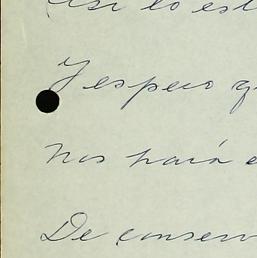 Así lo est
Y espero q
Nos hará e
De conserv